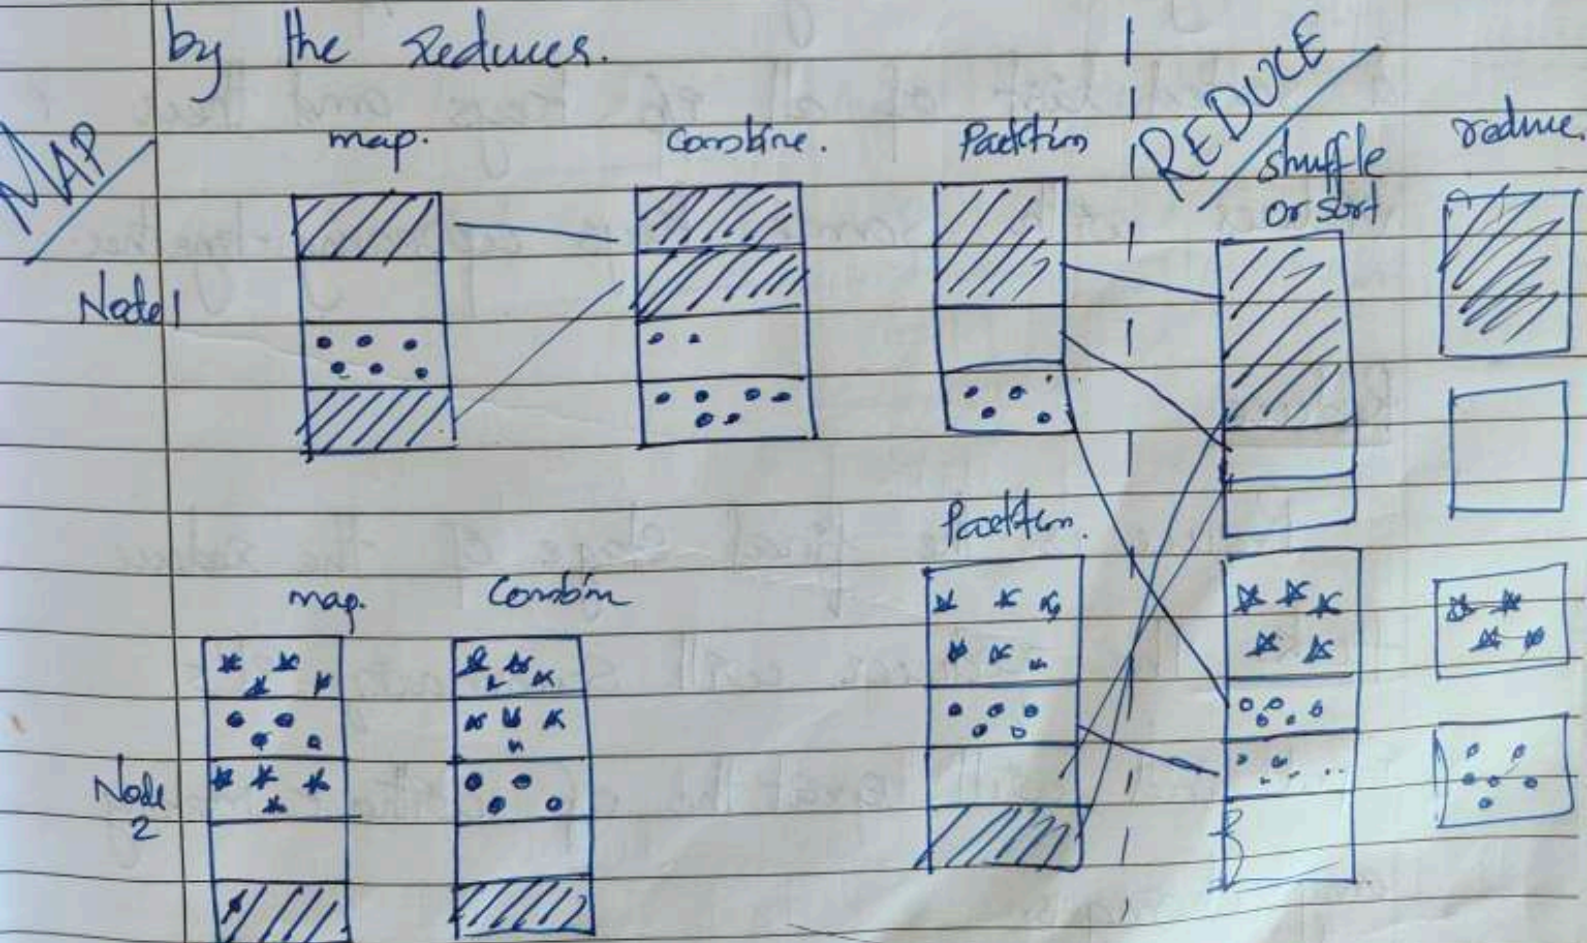 by the reduces.
MAP
map.
Combine.
Partition
REDUCE
shuffle
or sort
reduce.
Node 1
Partition.
map.
Combin
Node
2